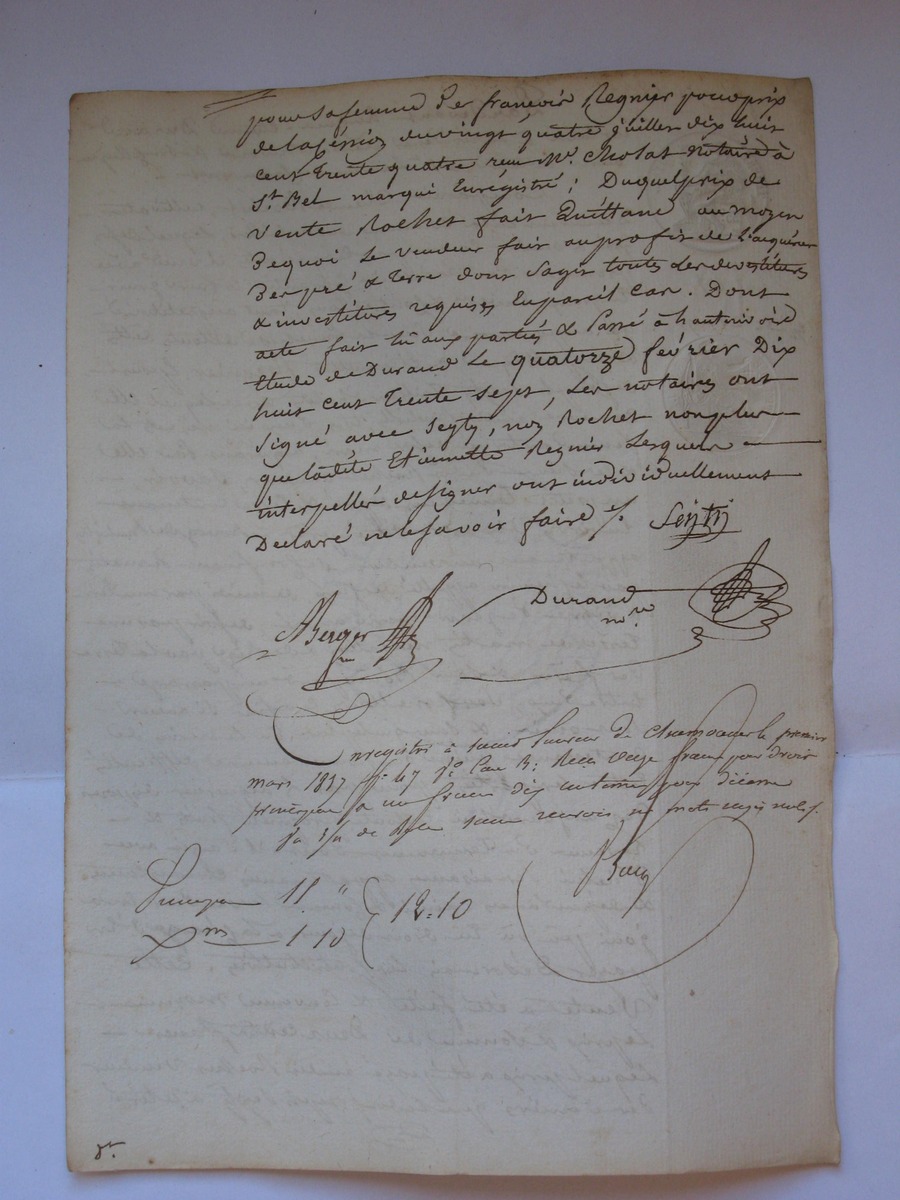 pour sa femme & François Regnier pour prix
de la cession du vingt quatre juillet dix huit
cent trente quatre recu Mr. Cholat notaire à
St. Bel marqué Enrégistré; Duquel prix de
vente Rochet fait Quittance au moyen
De quoi Le vendeur fait au profit de l'acquéreur
Des pré & Terre dont s'agit toutes Les devestitures
& investitures requises En pareil cas. Dont
acte fait lû aux parties & Passé à hauterivoire
Etude de Durand Le quatorze février Dix
huit cent trente sept, Les notaires ont
signé avec Seyty, non Rochet non plus
que ladite Etiennette Regnier Lesquels
interpellés de signer ont individuellement
Déclaré ne le savoir faire /.
Seitti
Durand
nre
Berger
Enregistré à Saint Laurent de Chamousset le premier
mars 1837 fo 47 Vo Case 3: Reçu onze francs pour droit
principal & un franc dix centimes pour décime
Principal 11 "
Xme 1 10
12=10